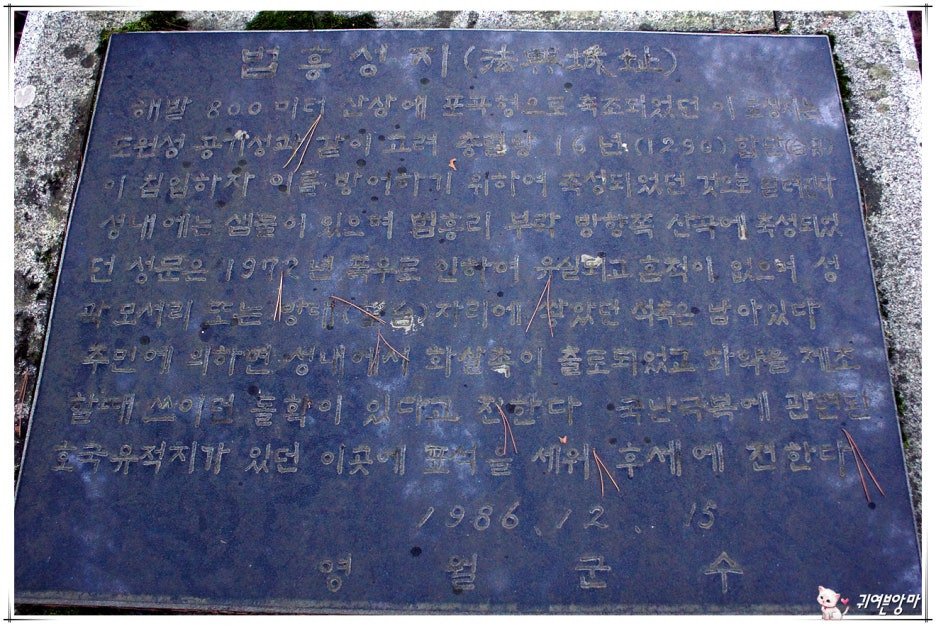 법흥성지(法興城址)
해발 800 미터 산상에 포곡형으로 축조되었던 이 산성지는
도원성 공기성과 같이 고려 충렬왕 16년(1290) 합단(合丹)
이 침입하자 이를 방어하기 위하여 축성되었던 것으로 들려진다
성내에는 샘물이 있으며 법흥리 부락 방향쪽 산곡에 축성되었
던 성문은 1972년 폭우로 인하여 유실되고 흔적이 없으며 성
곽 모서리 또는 망대( 台)자리에 쌓았던 석축은 남아있다
주민에 의하면 성내에서 화살촉이 출토되었고 화약을 제조
할때 쓰이던 돌확이 있다고 전한다 국난극복에 관련된
호국유적지가 있던 이곳에 표석을 세워 후세에 전한다
1986. 12. 15
영월군수
귀여븐앙마